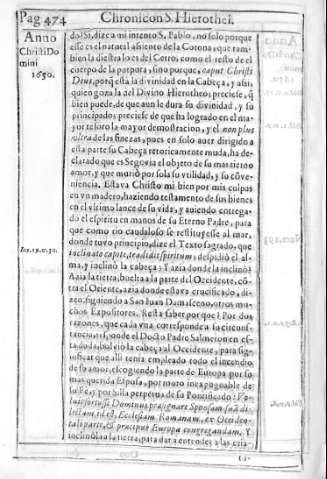 Pag 474
Chronicon S. Hierothei.
Anno
Christi Do
mini
1650.
do? Si, dize a mi intento S. Pablo, no solo porque
esse es natural assiento de la Corona, que tam-
bien la diestra lo es del Cetro, como el resto de el
cuerpo de la purpura, sino porque, caput Christi
Deus, porq̃ esta la divinidad en la Cabeça, y assi,
quien goza la del Divino Hierotheo; precise, q̃
bien puede, de que aun le dura su divinidad, y su
principado; precise de que ha logrado en el ma-
yor teatro la mayor demostracion, y el non plus
ultra de las finezas, pues en solo auer dirigido a
esta parte su Cabeça retoricamente muda, ha de-
clarado que es Segovia el objeto de su mas tierno
amor, y que murió por sola su vtilidad, y su cõve-
niencia. Estava Christo mi bien por mis culpas
en vn madero, haziendo testamento de sus bienes
en el vltimo lance de su vida, y auiendo entrega-
do el espiritu en manos de su Eterno Padre, para
que como rio caudaloso se restituyesse al mar,
donde tuvo principio, dize el Texto sagrado, que
inclinato capite, tradidit spiritum: despidió el al-
ma, y inclinò la cabeça? Y azia donde la inclinò?
Azia la tierra, buelta a la parte del Occidente, cõ-
tra el Oriente, azia donde estava crucificado, di-
zen, siguiendo a San Juan Damasceno, otros mu-
chos Expositores. Resta saber por que? Por dos
razones, que cada vna corresponde a su circuns-
tancia, es, onde el Docto Padre Salmeron en es-
ta duda, bolviò la cabeça al Occidente, para sig-
nificar que alli tenia empleado todo el incendio
de su amor, escogiendo la parte de Europa por su
mas querida Esposa, por muro inexpugnable de
su Fe, y por silla perpetua de su Pontificado: Vo-
luit fortasse Dominus præsignare Sponsam suã di-
lectam, id est, Ecclesiam Romanam, ex Occiden-
tali parte, & præcipue Europa congregandam. Y
inclinòla a la tierra, para dar a entender a las cria-